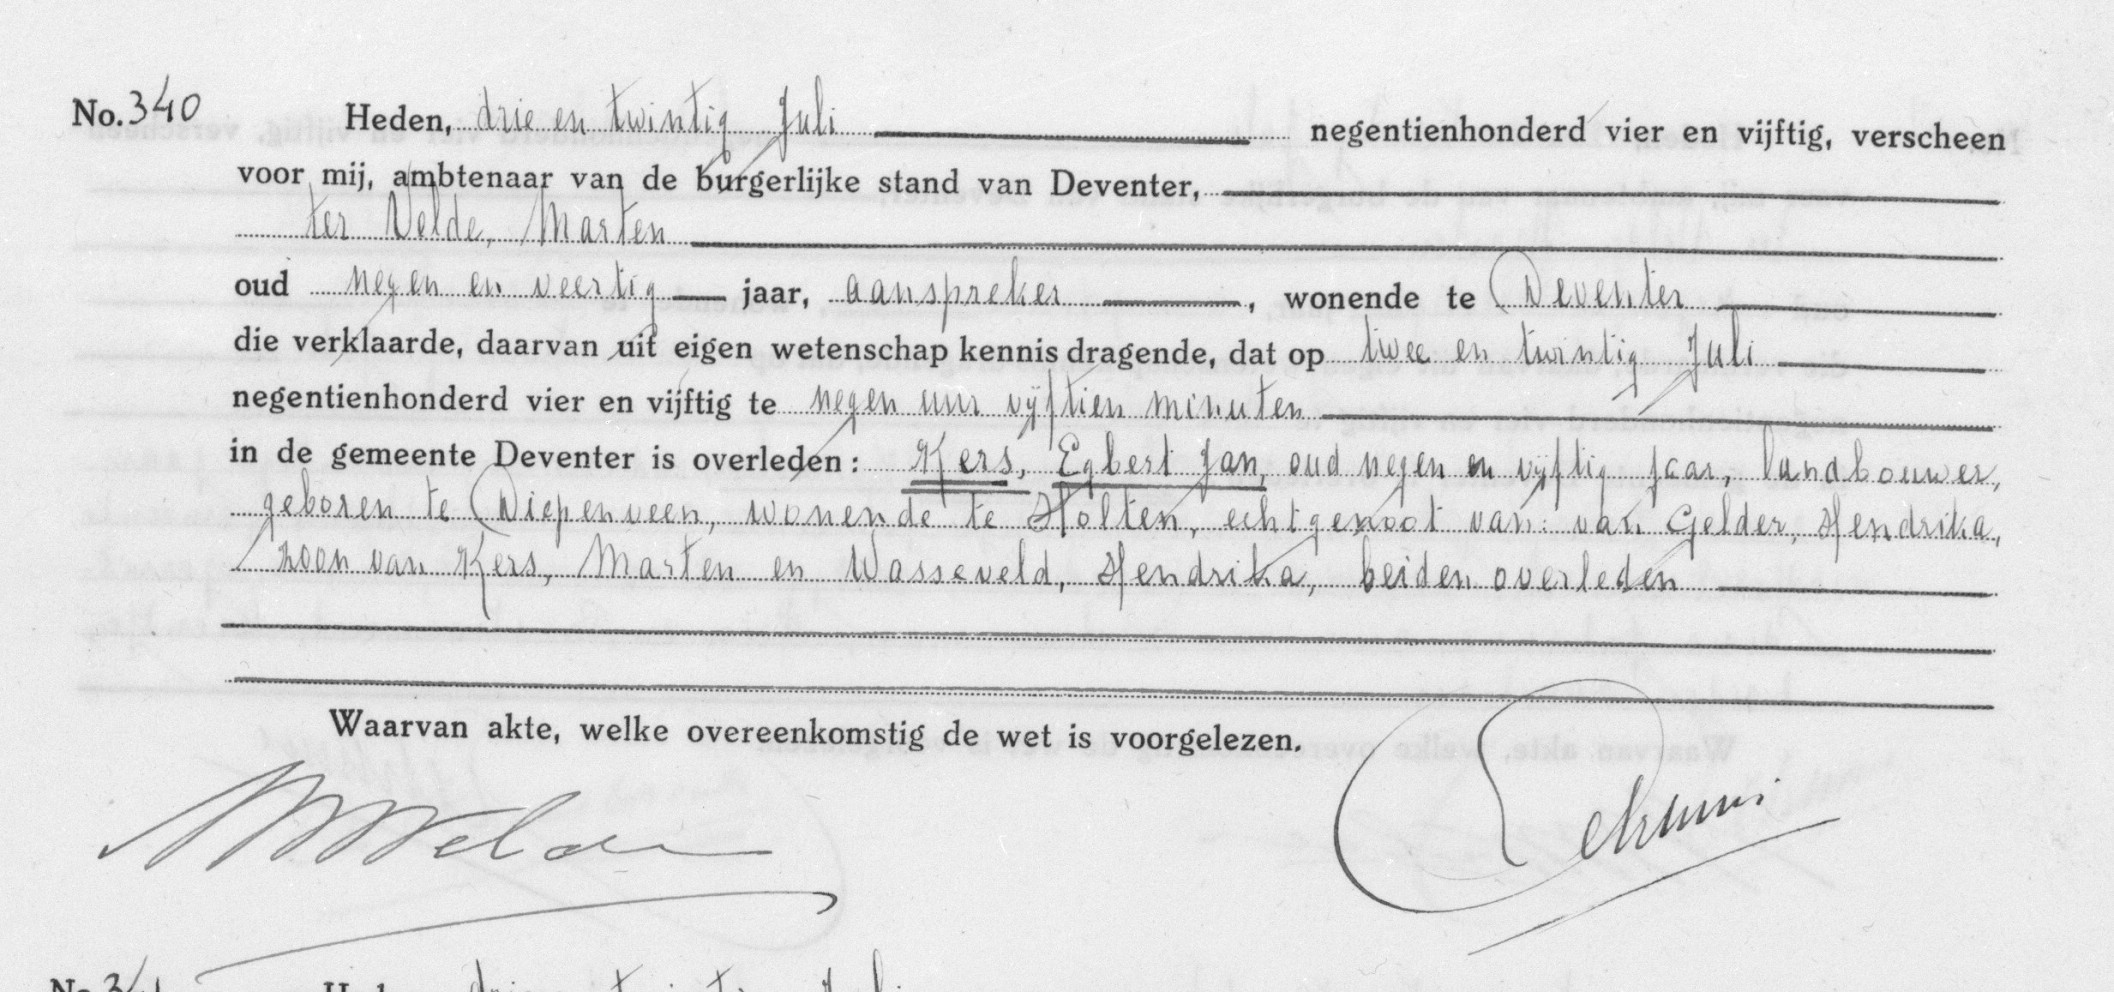 No. 340 Heden, drie en twintig Juli negentienhonderd vier en vijftig, verscheen
voor mij, ambtenaar van de burgerlijke stand van Deventer,
ter Velde, Marten
oud negen en veertig jaar, aanspreker, wonende te Deventer
die verklaarde, daarvan uit eigen wetenschap kennis dragende, dat op twee en twintig Juli
negentienhonderd vier en vijftig te negen uur vijftien minuten
in de gemeente Deventer is overleden: Kers, Egbert Jan, oud negen en vijftig jaar, landbouwer,
geboren te Diepenveen, wonende te Holten, echtgenoot van: van Gelder, Hendrika,
zoon van Kers, Marten en Wasseveld, Hendrika, beiden overleden
Waarvan akte, welke overeenkomstig de wet is voorgelezen.